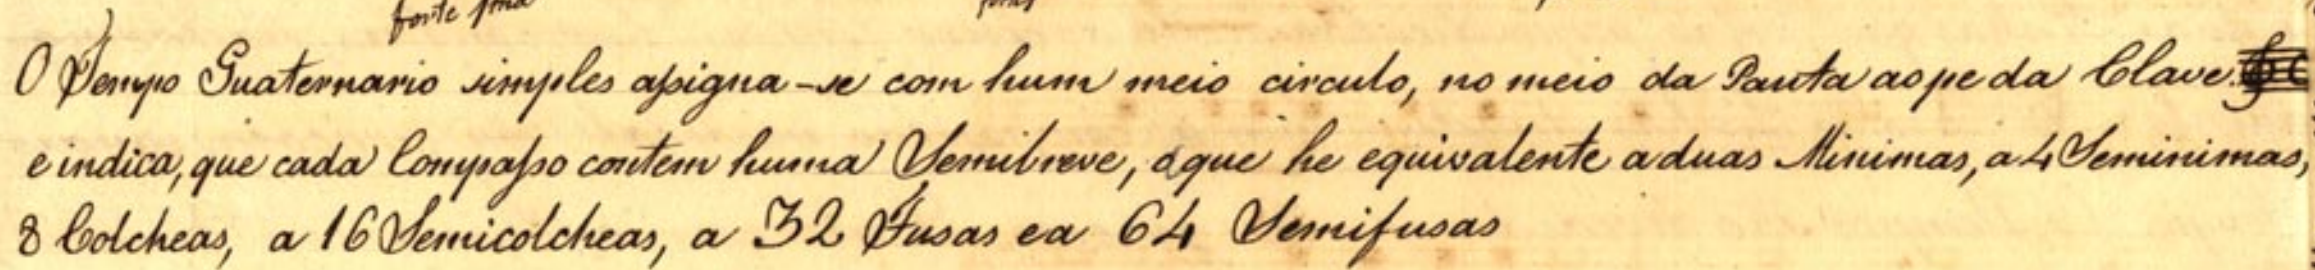 forte
O Tempo Quaternario simples assigna-se com hum meio circulo, no meio da Pauta ao pe da Clave.
e indica, que cada Compasso contem huma Semibreve, o que he equivalente a duas Minimas, a 4 Seminimas,
8 Colcheas, a 16 Semicolcheas, a 32 Fusas e a 64 Semifusas